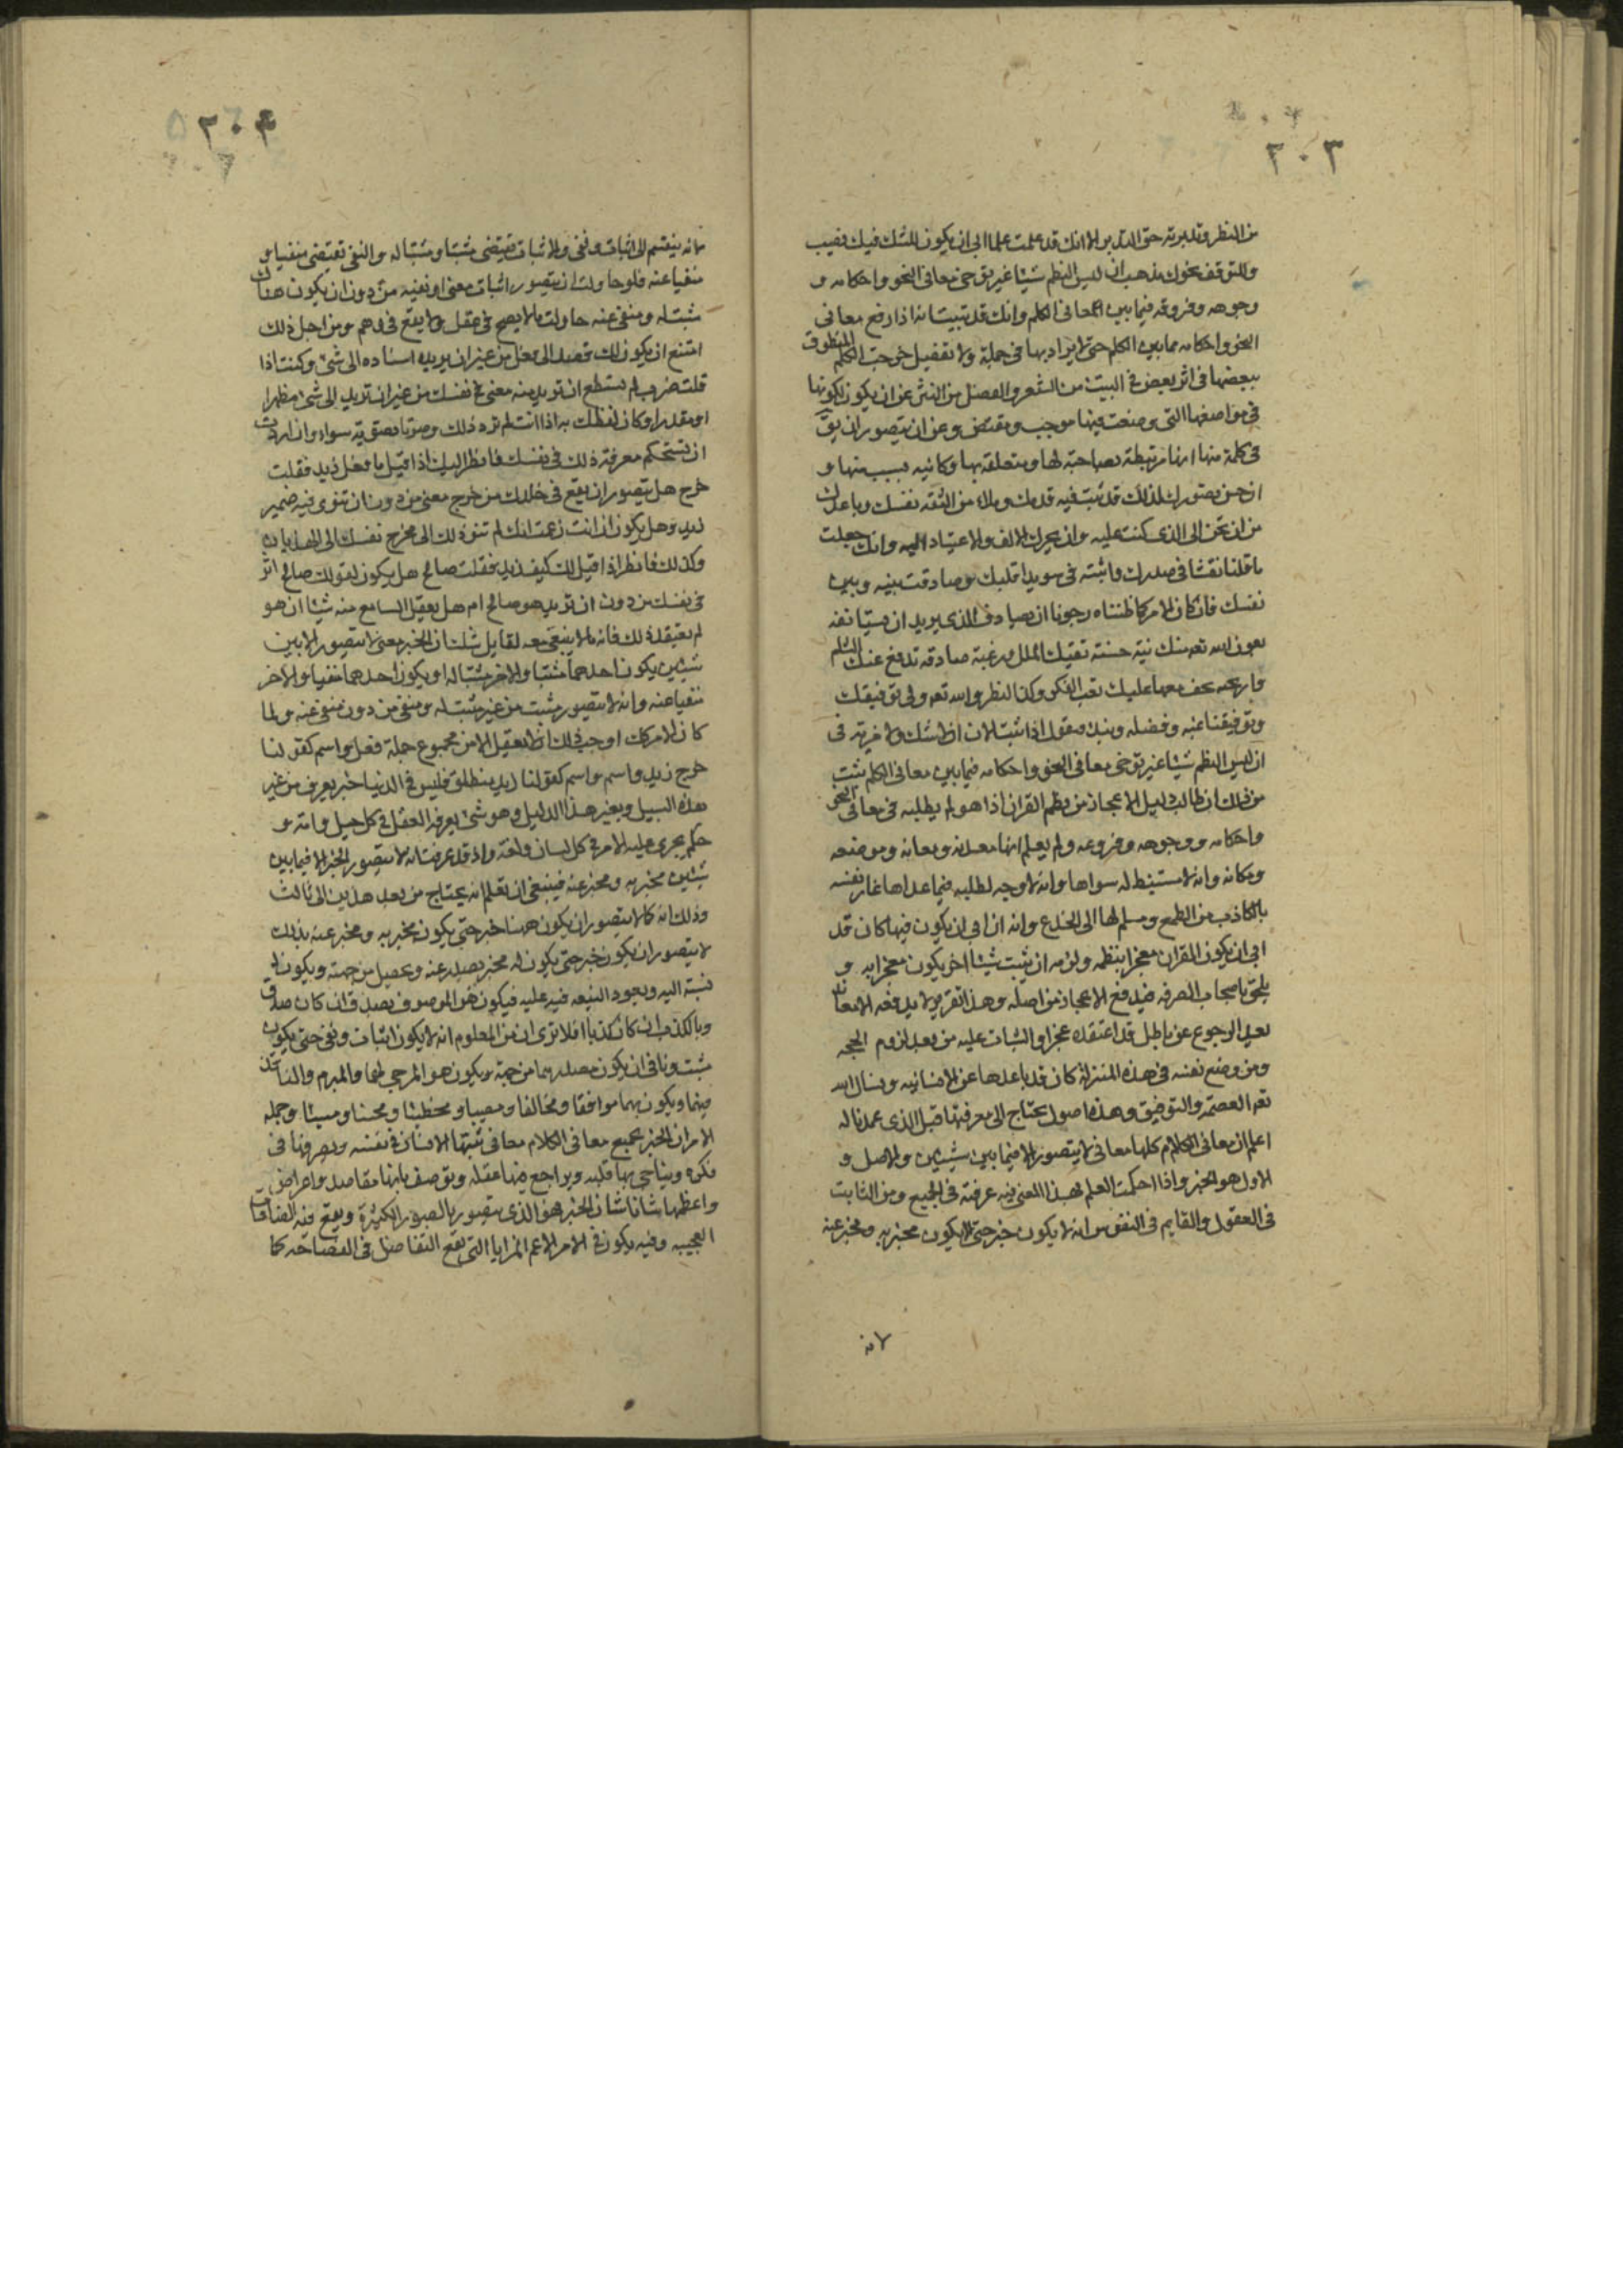 ٢٠٣
من النظر وتدبرته حق التدبر الا انك قد علمت علما ابى ان يكون للشك فيك نصيب
وللتوقف نحوك مذهب ان ليس النظم شيئا غير توخي معاني النحو واحكامه و
وجوهه وفروقه فيما بين معاني الكلم وانك قد تبينت انه اذا رفع معاني
النحو واحكامه مما بين الكلم حتى لا يراد بها في جملة ولا تفصيل خرجت الكلم المنطوق
ببعضها في اثر بعض في البيت من الشعر والفصل من النثر عن ان يكون لكونها
في مواضعها التي وضعت فيها موجب ومقتض وعن ان يتصور ان يق
في كلمة منها انها مرتبطة بصاحبة لها ومتعلقة بها وكائنه بسبب منها و
ان حسن تصورك لذلك قد ثبت فيه قدمك وملاء من الثقه نفسك وباعدك
من ان تحن الى الذي كنت عليه وان يجرك الالف والاعتياد اليه وانك جعلت
ما قلنا نقشا في صدرك واثبته في سويدا قلبك وصادقت بينه وبين
نفسك فان كان الامر كما ظنناه رجونا ان يصادف الذي يريد ان نستانفه
بعون الله تعه منك نية حسنة تقيك الملل ورغبة صادقه تدفع عنك السئم
واريحيه يخف معها عليك تعب الفكر وكد النظر والله تعه ولي توفيقك
وتوفيقنا بمنه وفضله ونبدء فنقول اذا ثبت الان ان لا شك ولا مرية في
ان ليس النظم شيئا غير توخي معاني النحو واحكامه فيما بين معاني الكلم ثبت
من ذلك ان طالب دليل الاعجاز من نظم القران اذا هو لم يطلبه في معاني النحو
واحكامه ووجوهه وفروعه ولم يعلم انها معدنه ومعانه وموضعه
ومكانه وانه لا مستنبط له سواها وانه لا وجه لطلبه فيما عداها غار نفسه
بالكاذب من الطمع ومسلم لها الى الخدع وانه ان ابى ان يكون فيها كان قد
ابى ان يكون القران معجزا بنظمه ولزمه ان يثبت شيئا اخر يكون معجزا به و
يلحق باصحاب الصرفه فيدفع الاعجاز من اصله وهذا تقرير لا يدفعه الا معاند
يعد الرجوع عن باطل قد اعتقده عجزا والثبات عليه من بعد لزوم الحجه
ومن وضع نفسه في هذه المنزلة كان قد باعدها عن الانسانيه ونسال الله
تعه العصمه والتوفيق وهذه اصول يحتاج الى معرفتها قبل الذي عمدنا له
اعلم ان معاني الكلام كلها معاني لا يتصور الا فيما بين شيئين والاصل و
الاول هو الخبر واذا احكمت العلم بهذا المعنى فيه عرفته في الجميع ومن الثابت
في العقول والقايم في النفوس انه لا يكون خبر حتى يكون مخبر به ومخبر عنه
لانه
٢٠۴
لانه ينقسم الى اثبات ونفي والاثبات يقتضي مثبتا ومثبتا له والنفي تقتضي منفيا و
منفيا عنه فلو حاولت ان يتصور اثبات معنى او نفيه من دون ان يكون هناك
مثبت له ومنفي عنه حاولت ما لا يصح في عقل ولا يقع في وهم ومن اجل ذلك
امتنع ان يكون لك قصد الى فعل من غير ان يريد اسناده الى شئ وكنت اذا
قلت ضرب لم تستطع ان تريد منه معنى في نفسك من غير ان تريد الى شئ مظهرا
او مقدرا وكان لفظك به اذا انت لم ترد ذلك وصوتا تصوته سواء وان اردت
ان تستحكم معرفة ذلك في نفسك فانظر اليك اذا قيل ما فعل زيد فقلت
خرج هل يتصور ان يقع في خلدك من خرج معنى من دون ان تنوي فيه ضمير
زيد وهل يكون ان انت زعمت انك لم تنو ذلك الا مخرج نفسك الى الهذيان
وكذلك فانظر اذا قيل لك كيف زيد فقلت صالح هل يكون لقولك صالح اثر
في نفسك من دون ان تريد هو صالح ام هل يعقل السامع منه شيئا ان هو
لم يعتقد ذلك فانه ما لا يبقى معه لقايل شك ان الخبر معنى لا يتصور الا بين
شيئين يكون احدهما مثبتا والاخر مثبتا له او يكون احدهما منفيا والاخر
منفيا عنه وانه لا يتصور مثبت من غير مثبت له ومنفي من دون منفي عنه ولما
كان الامر كك اوجب ذلك ان لا يعقل الا من مجموع جملة فعل واسم كقولنا
خرج زيد واسم واسم كقولنا زيد منطلق فليس في الدنيا خبر يعرف من غير
هذه السبيل وبغير هذا الدليل وهو شئ يعرفه العقل في كل جيل وامه و
حكم يجري عليه الامر في كل لسان ولغه واذ قد عرفت انه لا يتصور الخبر الا فيما بين
شيئين مخبر به ومخبر عنه فينبغي ان تعلم انه يحتاج من بعد هذين الى ثالث
وذلك انه كما لا يتصور ان يكون ههنا خبر حتى يكون مخبر به ومخبر عنه كذلك
لا يتصور ان يكون خبر حتى يكون له مخبر يصدر عنه ويحصل من جهته ويكون له
نسبة اليه ويعود التبعه فيه عليه فيكون هو الموصوف بصدق ان كان صدقا
وبالكذب ان كان كذبا افلا ترى ان من المعلوم انه لا يكون اثبات ونفي حتى يكون
مثبت ونافي ان يكون مصدرهما من جهته ويكون هو المزجي لهما والمبرم والناقض
فيهما ويكون بهما موافقا ومخالفا ومصيبا ومخطيئا ومحسنا ومسيئا وجمله
الامر ان الخبر جميع معاني الكلام معاني تثبتها الانسان في نفسه ويصرفها في
فكره ويناجي بها قلبه ويراجع فيها عقله وتوصف بانها مقاصد واغراض
واعظمها شانا شان الخبر هو الذي يتصور بالصور الكثيرة ويقع فيه الصناعات
العجيبه وفيه يكون في الامر الاعم المزايا التي يقع التفاضل في الفصاحه كما